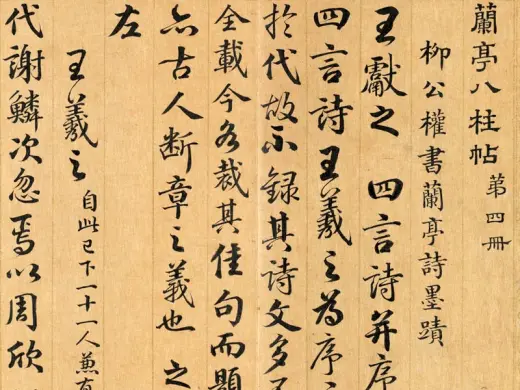 蘭亭八柱帖 第四冊
柳公權書蘭亭詩墨蹟
王獻之 四言詩并序
四言詩王羲之為序
於代故不錄其詩文多
全載今各裁其佳句而題
亦古人斷章之義也
左
王羲之 自此已下一十一人兼有
代謝鱗次忽焉以周欣